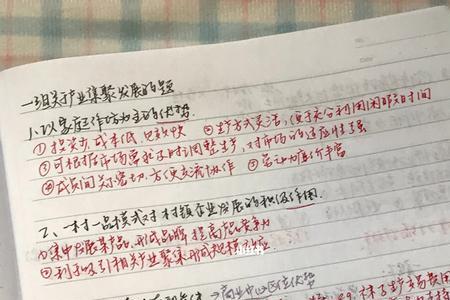 一、相关产业集聚发展的题
1、以家庭作坊为主的优势.
①投资少,成本低,见效快 ②生产方式灵活,便于充分利用闲暇时间
③可根据市场需求及时调整生产,对市场的适应性强
④成员间关系密切,方便交流协作 ⑤劳动力廉价丰富
2、一村一品模式对村镇企业发展的积极作用.
①集中发展某产品,形成品牌,提高竞争力
②利于吸引相关产业聚集,形成规模效应
→商业中心区位优势